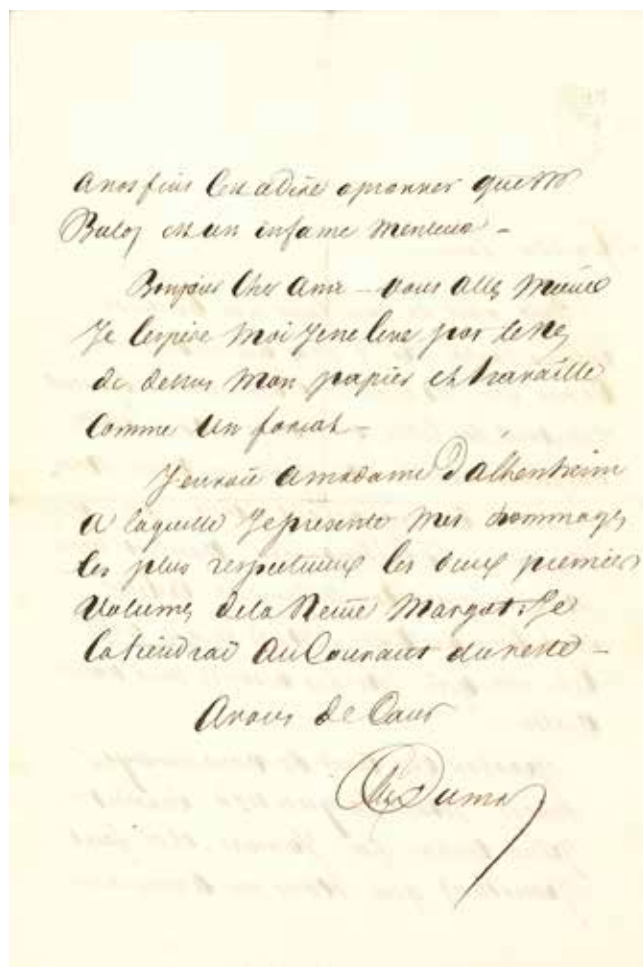 a nos fins C'est a dire a prouver que Mr
Buloz est un infame menteur –
Bonjour cher ami – vous allez mieux
Je l'espère moi je ne leve pas le nez
de dessus mon papier et travaille
comme un forcat –
J'envoie a madame Dalhenheim
a laquelle Je presente mes hommages
les plus respectueux les deux premiers
volumes de la Reine Margot. Je
la tiendrai au Courant du reste –
A vous de Cœur
Alex Dumas